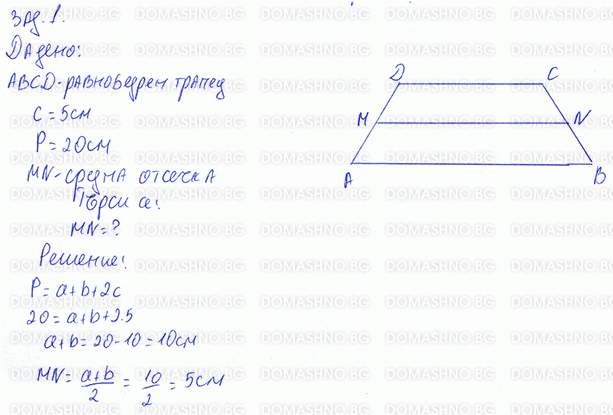 Зад. 1.
Дадено:
ABCD - равнобедрен трапец
C = 5см
P = 20см
MN - средна отсечка
Търси се:
MN = ?
Решение:
P = a + b + 2c
20 = a + b + 2.5
a + b = 20 - 10 = 10см
MN = a+b/2 = 10/2 = 5см
D C
M N
A B
DOMASHNO.BG